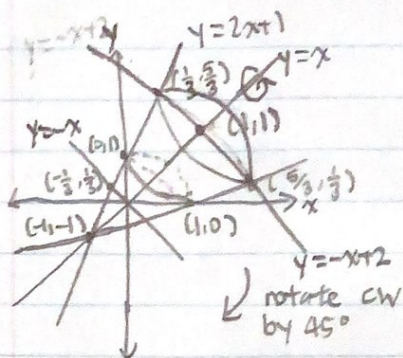 y=-x+2
y
y=2x+1
(1/3, 5/3)
y=x
y=-x
(0,1)
(1,1)
(-1/3, 1/3)
(5/3, 1/3)
x
(-1,-1)
(1,0)
y=-x+2
rotate CW
by 45°